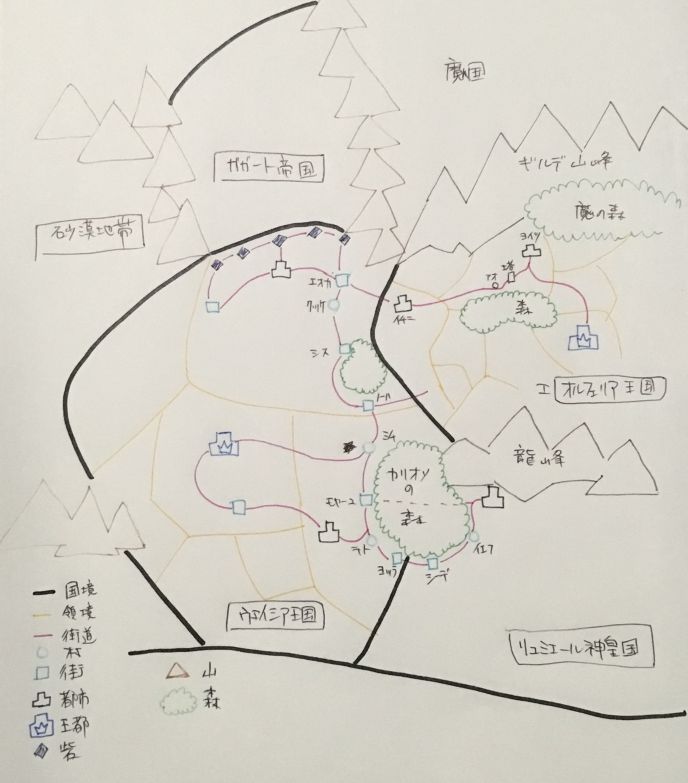 魔国
ギルデ山峰
ガガート帝国
魔の森
砂漠地帯
ヨイツ
エオカ
イチニ
森
クツケ
シヌ
オルフェリア王国
ノール
ニム
龍山峰
カリオソ
の
森
イエフ
シーデ
ウェイシア王国
リュミエール神皇国
国境
領境
街道
村
街
都市
王都
砦
山
森